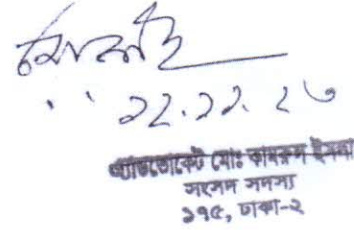 ২২.১১.২৩
এ্যাডভোকেট মোঃ কামরুল ইসলা
সংসদ সদস্য
১৭৫, ঢাকা-২